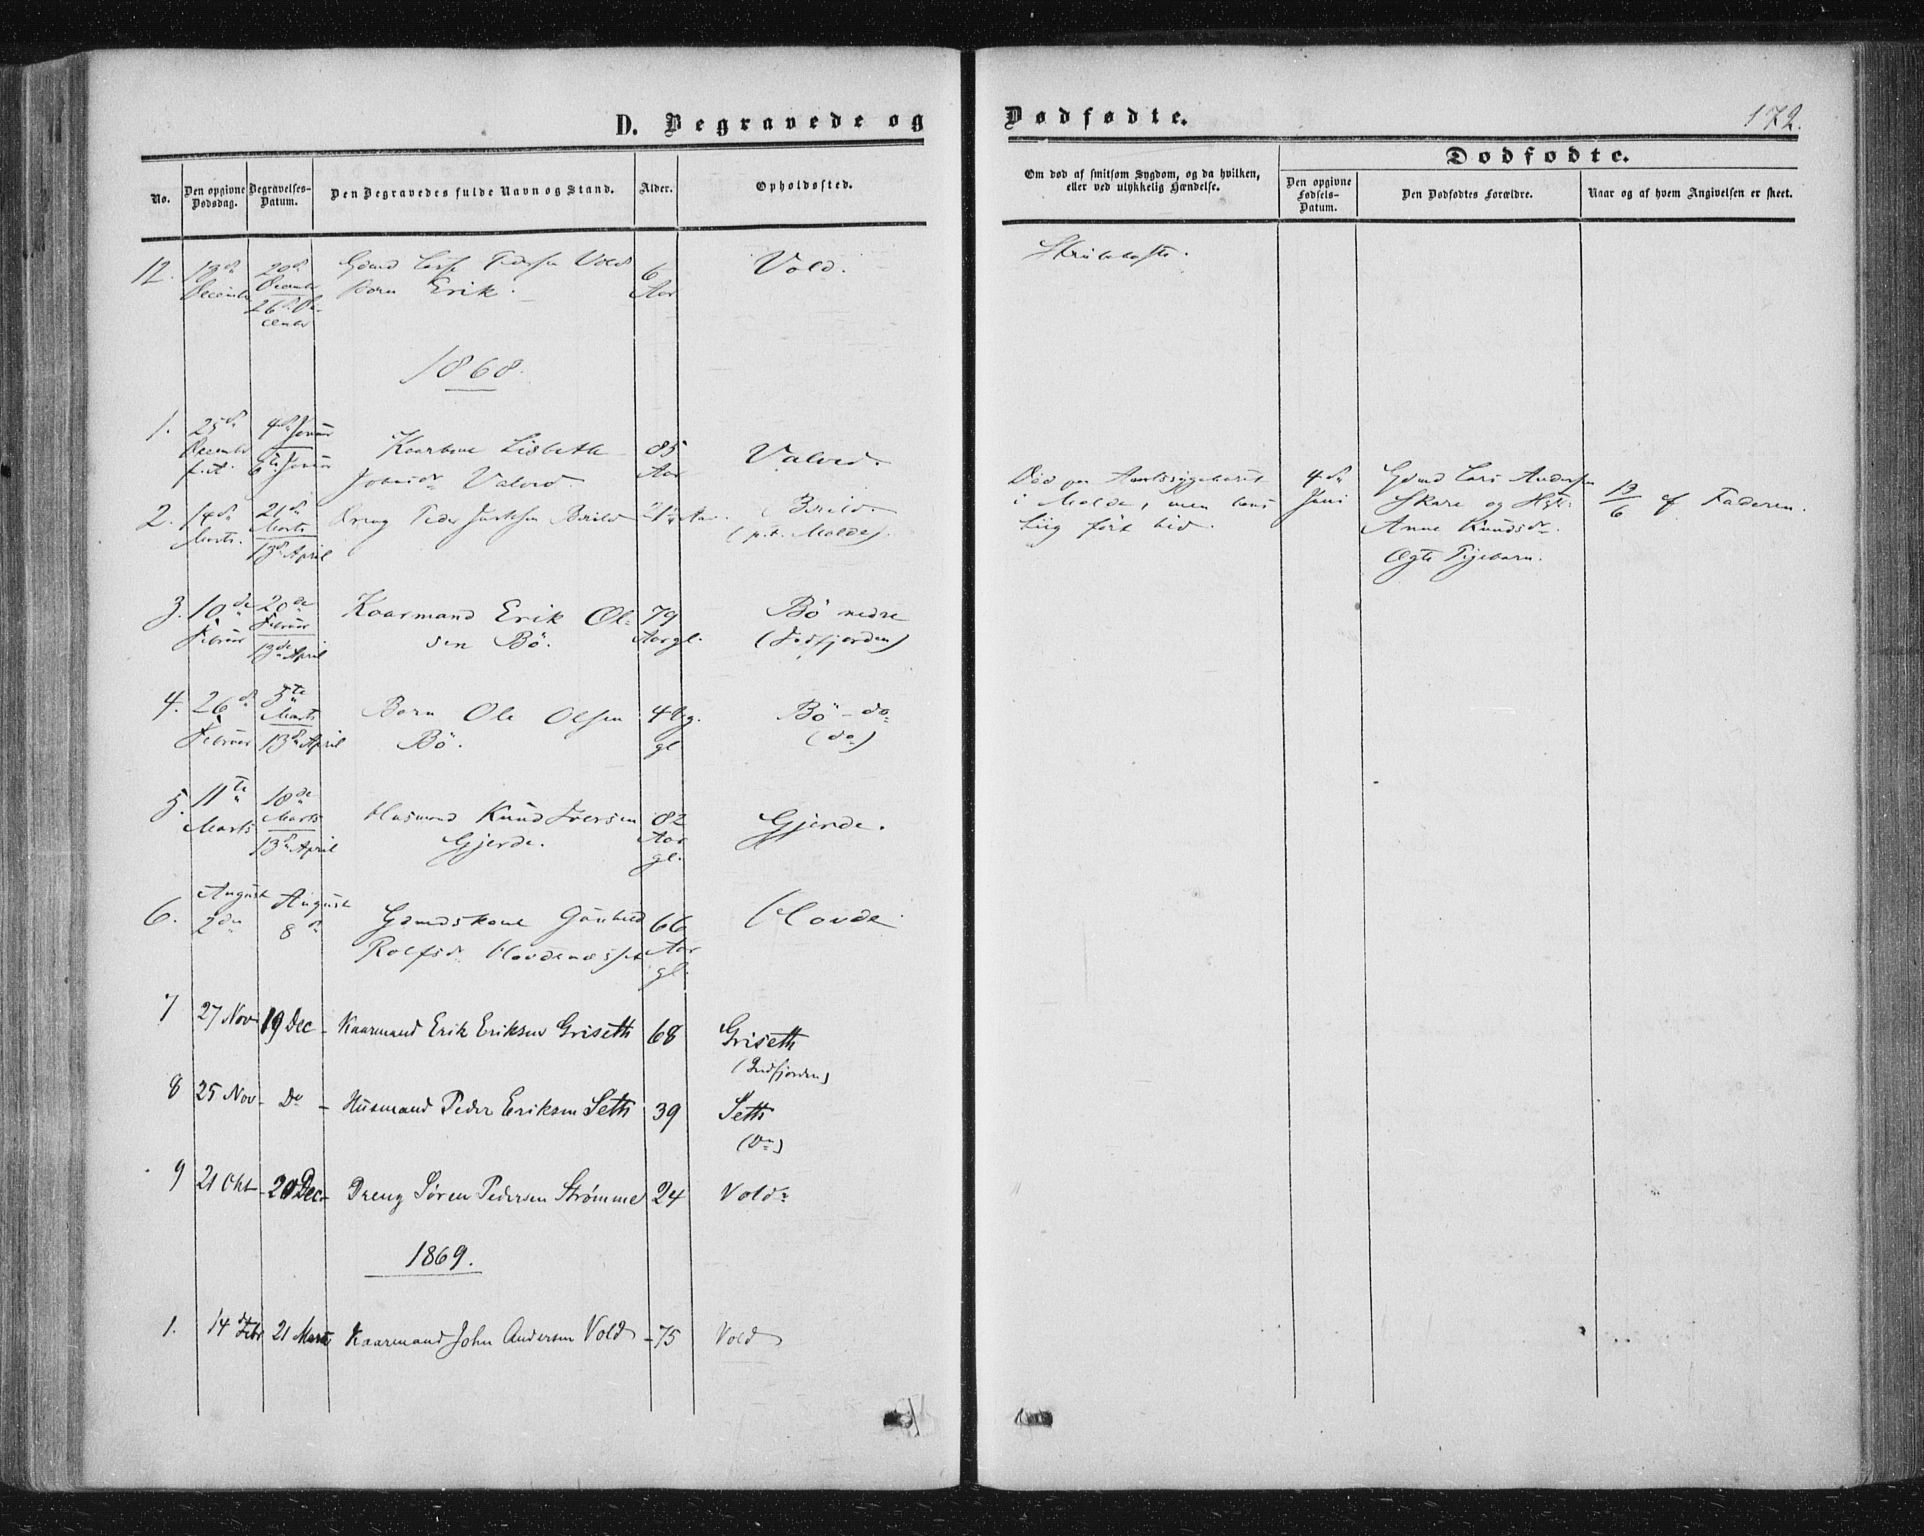 D. Begravede og Dødfødte.
172.
No.
Den opgivne Dødsdag.
Begravelses-Datum.
Den Begravedes fulde Navn og Stand.
Alder.
Opholdssted.
Om død af smitsom Sygdom, og da hvilken,
eller ved ulykkelig Hændelse.
Dødfødte.
Den opgivne Fødsels-Datum.
Den Dødfødtes Forældre.
Naar og af hvem Angivelsen er skeet.
12. 18de 20de Gdmd Peders Vold 6 Vold.
December December Barn Erik. Aar
26de De-
cember
1868.
1. 25de 4de Januar
December Lisbeth 85 Valved.
f. A. 6te Januar Valved Aar
2. 14de 21de Dreng Peder Aar.
Marts. Marts (p.t. Molde).
13de April
Død paa Amtssygehuset 4de Gdmd Lars Andersen
i Molde, men hans Juni Skare og Hst: 19/6 af Faderen.
Liig ført hid. Anne Knudsdr.
Ægte Pigebarn.
3. 10de 20de Kaarmand Erik Ol- 79 Bö nedre
Februar Februar sen Bö. Aar gl.
13de April
4. 26de 5te Barn Ole Olsen 4 Bö - do
Februar Marts Bö. gl (do)
13de April
5. 11te 18de Husmand Knud Iversen 82 Gjerde.
Marts Marts Gjerde. Aar
13de April gl.
6. August August Gdmdskone 66 Hovde
2den 8de Rolfsdr Hovdenæsset Aar
gl.
7 27 Nov 19 Dec - Kaarmand Erik Eriksen Griseth 68 Griseth
8 25 Nov - Do - Husmand Peder Eriksen Seth 39 Seth
(Do)
9 21 Okt - 20 Dec - Dreng Søren Pedersen Strømme 24 Vold
1869.
1. 14 Febr 21 Marts Kaarmand John Andersen Vold - 75 Vold